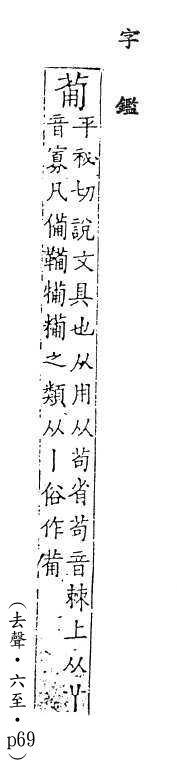 字鑑
𤰇
平秘切說文具也从用从苟省苟音棘上从𦫳
音寡凡備鞴犕糒之類从丨俗作
(去聲・六至・p69)